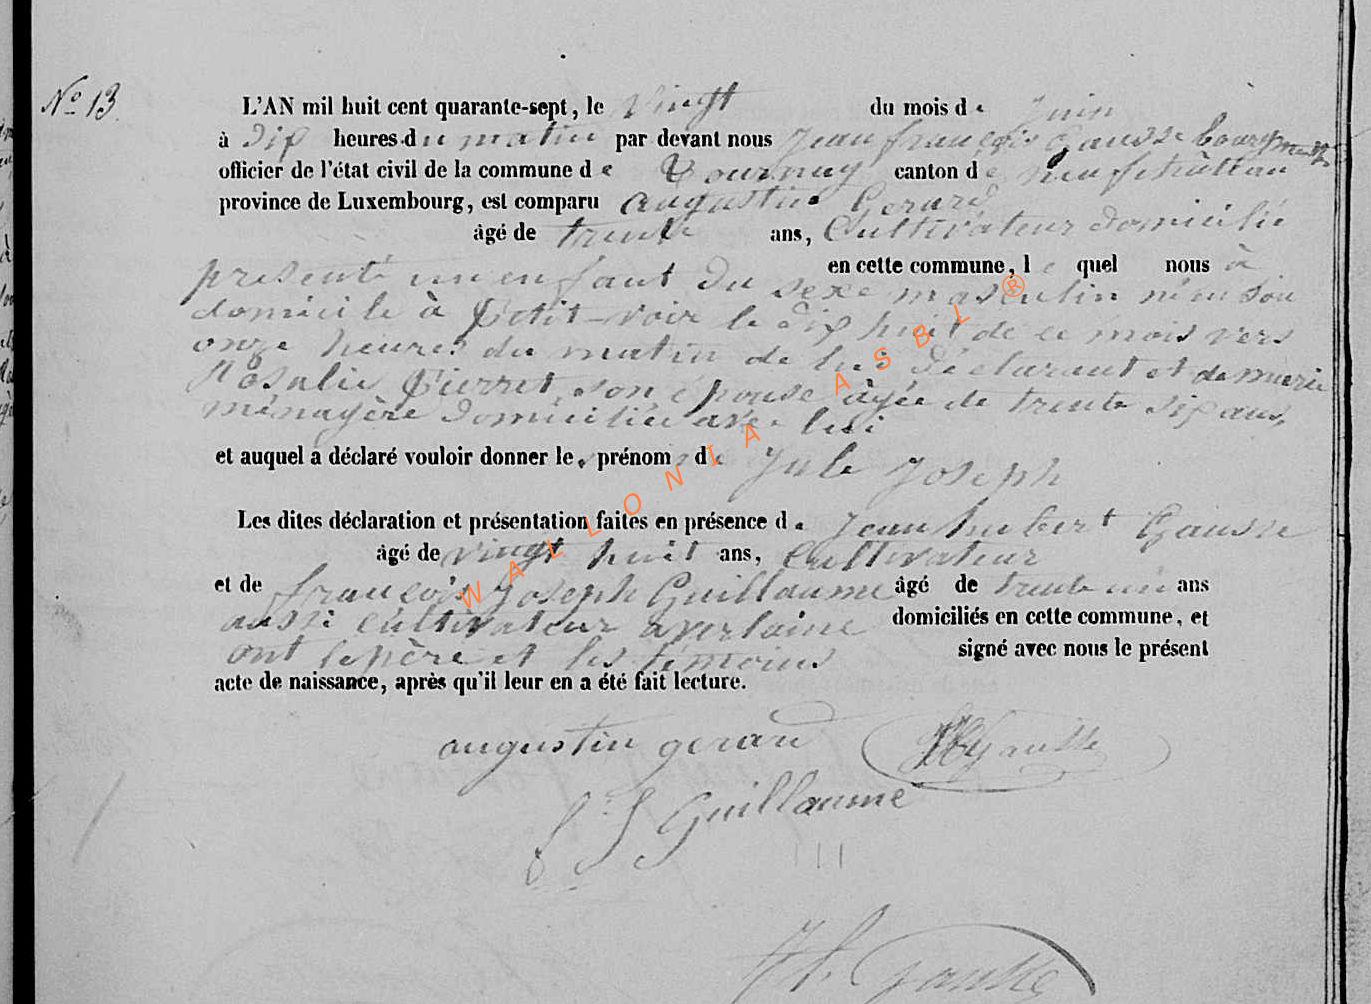 No 13.
L'AN mil huit cent quarante-sept, le vingt du mois de juin
à dix heures du matin par devant nous jean françois Gausse bourgmestre
officier de l'état civil de la commune de Tournay canton de neufchâteau
province de Luxembourg, est comparu augustin Gerard
âgé de trente ans, Cultivateur domicilié
en cette commune, le quel nous à
presenté un enfant du sexe masculin né en son
domicile à Petit-voir le dix huit de ce mois vers
onze heures du matin de lui déclarant et de marie
Rosalie Pierret son épouse âgée de trente six ans,
ménagère domiciliée avec lui
et auquel a déclaré vouloir donner le prénom de Jule Joseph
Les dites déclaration et présentation faites en présence de Jean hubert Gausse
âgé de vingt huit ans, Cultivateur
et de françois Joseph Guillaume âgé de trente un ans
aussi cultivateur a verlaine domiciliés en cette commune, et
ont le père et les témoins signé avec nous le présent
acte de naissance, après qu'il leur en a été fait lecture.
augustin gerard JHgausse
f. J Guillaume
J f. Gausse
WALLONIA ASBL ®